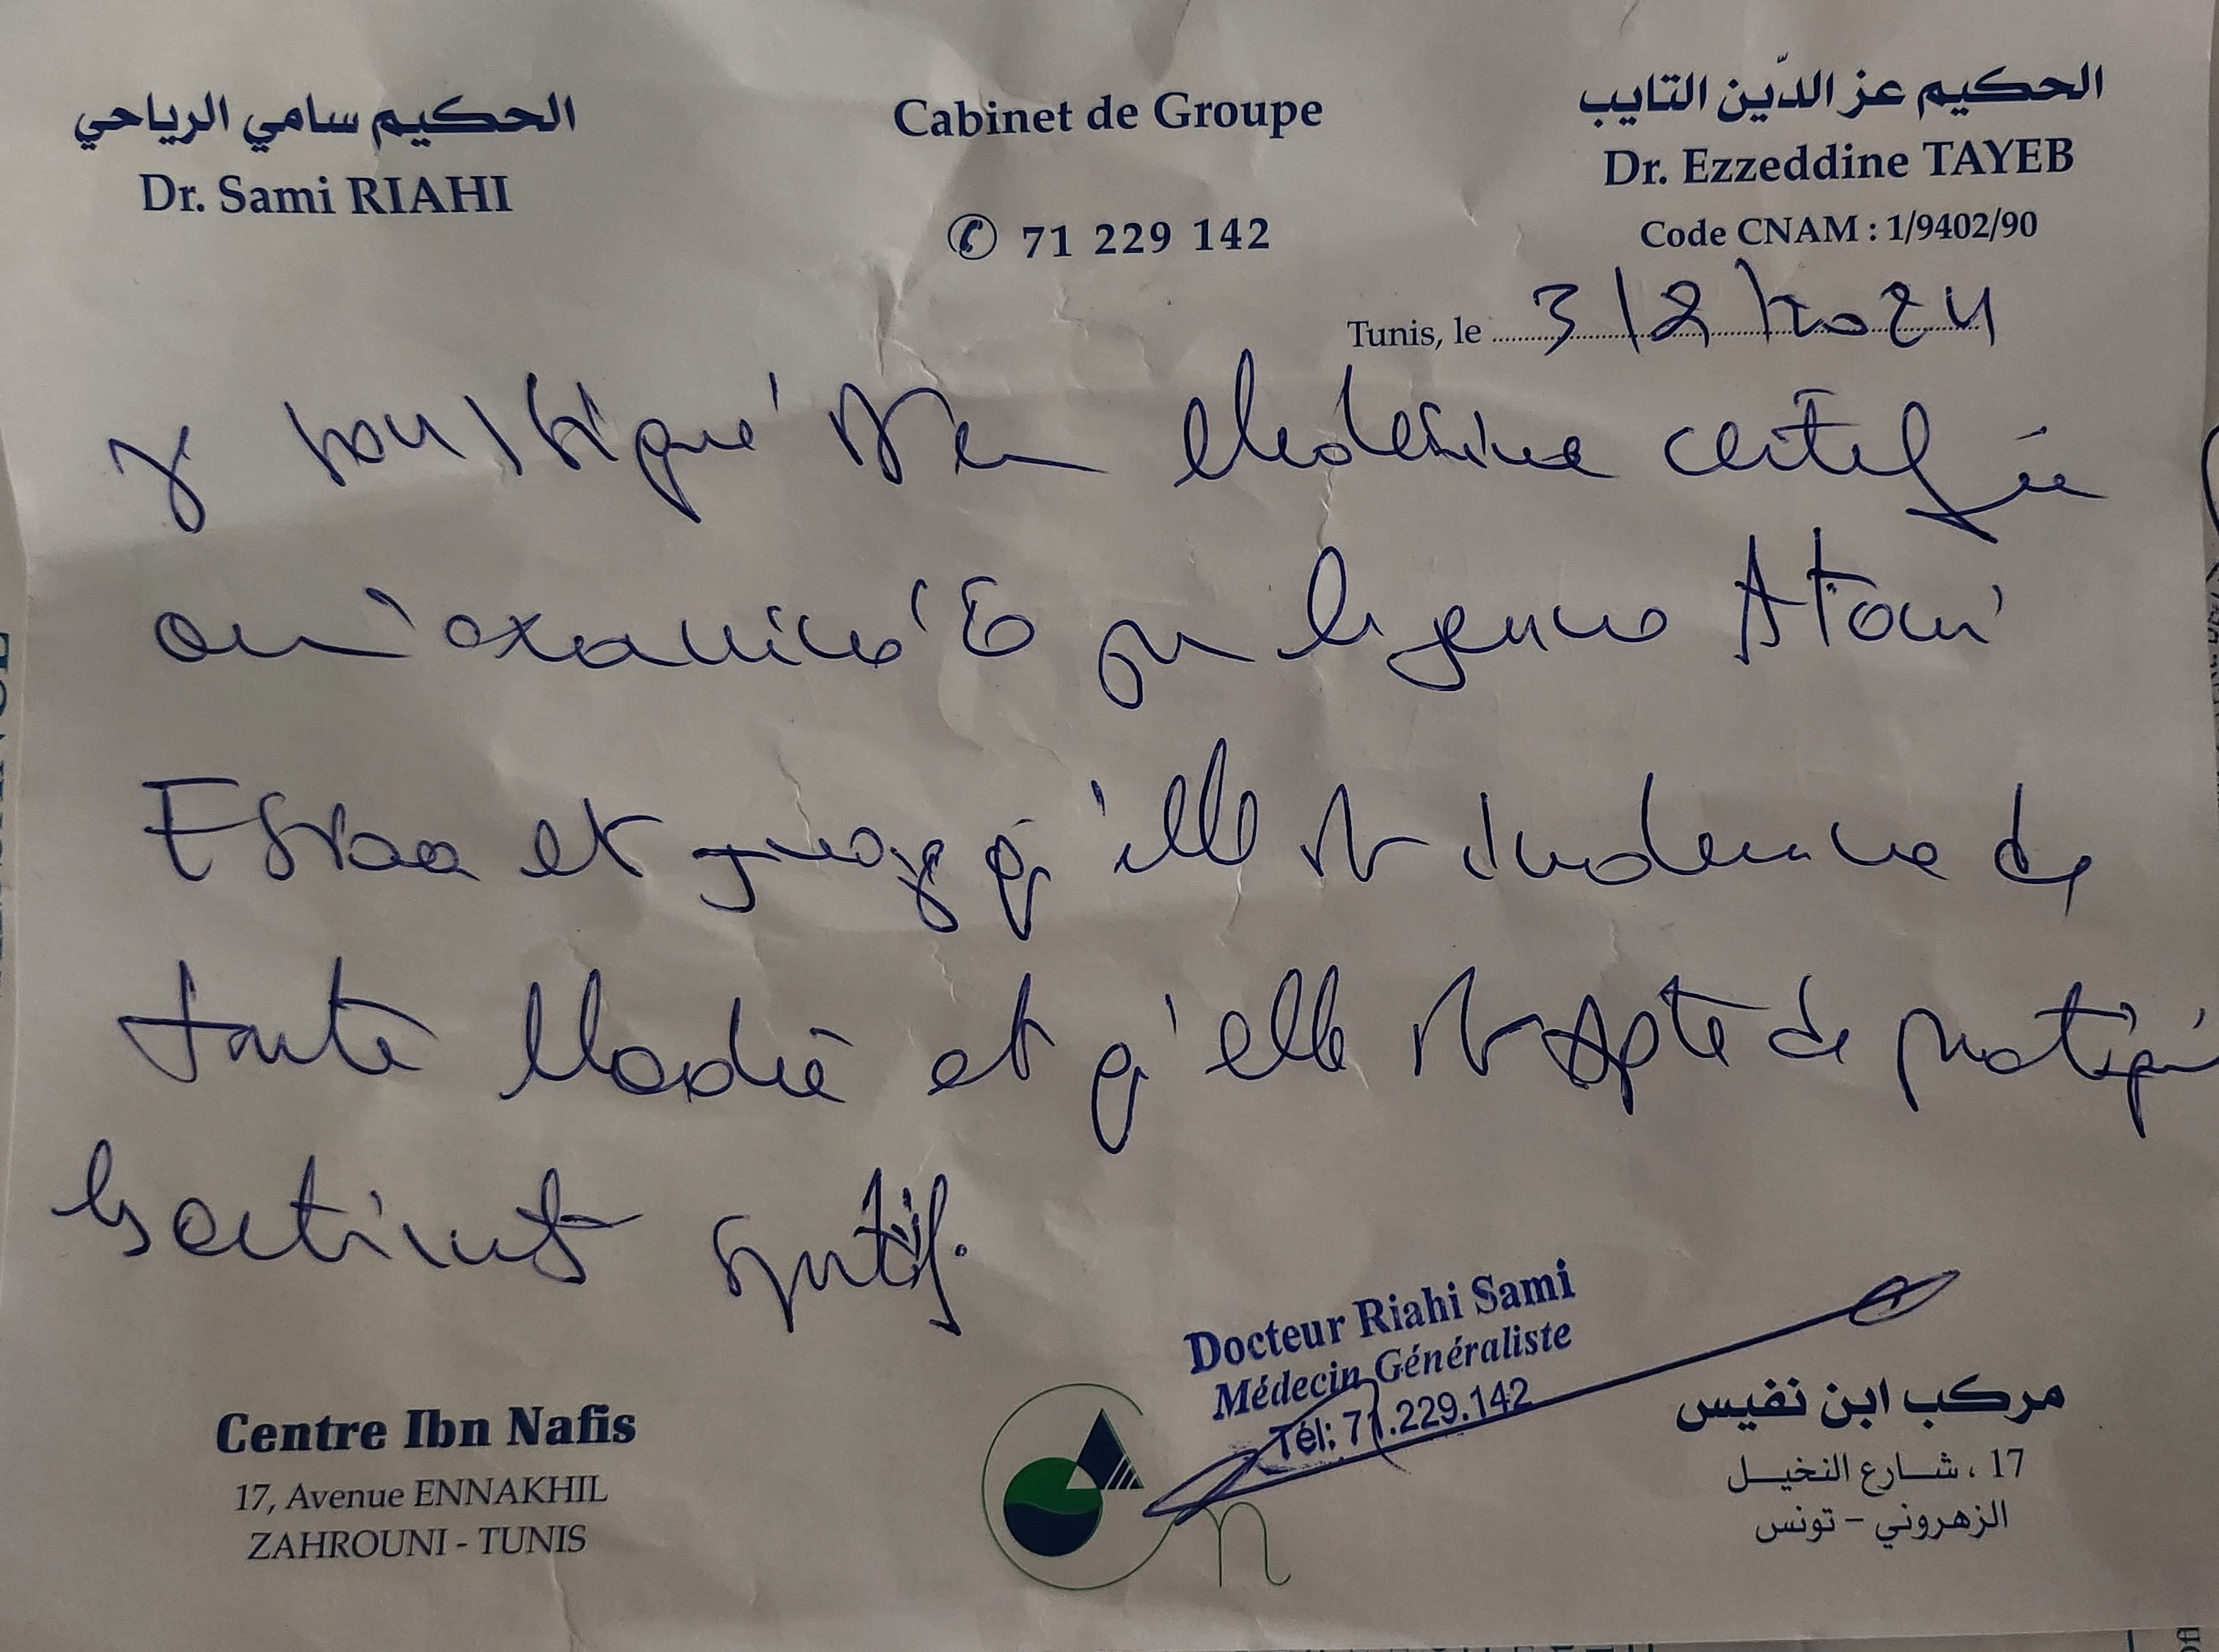 الحكيم سامي الرياحي
Dr. Sami RIAHI
Cabinet de Groupe
✆ 71 229 142
الحكيم عز الدّين التايب
Dr. Ezzeddine TAYEB
Code CNAM : 1/9402/90
Tunis, le 3/2/2024
soussigné en Medecine certifie
examiné ce Atoui
Essraa et qu'elle est indemne de
toute Maladie et qu'elle est Apte de pratiqué
les activités sportif.
Docteur Riahi Sami
Médecin Généraliste
Tél: 71.229.142
Centre Ibn Nafis
17, Avenue ENNAKHIL
ZAHROUNI - TUNIS
n
مركب ابن نفيس
17 ، شارع النخيل
الزهروني - تونس